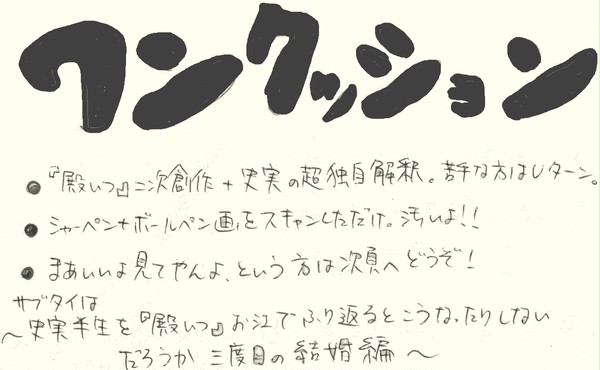 ワンクッション
●『殿いつ』二次創作+史実の超独自解釈。苦手な方はUターン。
●シャーペン+ボールペン画をスキャンしただけ。汚いよ!!
●まあいいよ見てやんよ、という方は次頁へどうぞ!
サブタイは
～史実半生を『殿いつ』お江でふり返るとこうなったりしない
だろうか 三度目の結婚編～